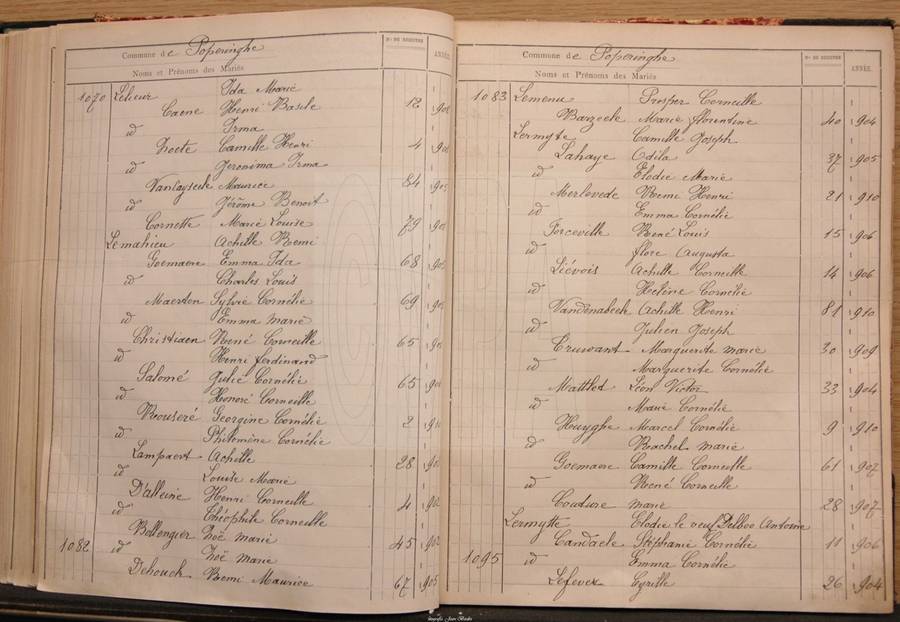 Commune de Poperinghe
Nos DE REGISTRE
ANNÉE
Noms et Prénoms des Mariés
1070 Lelieur Ida Marie
Caene Henri Basile 12
id Irma
Camille Henri 4
id Geronima Irma
Vanlayseele Maurice 84
id Jérôme Benoit
Cornette Marie Louise 79
Lemahieu Achille Remi
Goemaere Emma Ida 68
id Charles Louis
Maerten Sylvie Cornélie 69
id Emma Marie
Christiaen René Corneille 65
id Henri Ferdinand
Salomé Julie Cornélie 65
id Honoré Corneille
Rouseré Georgine Cornélie 2
id Philomène Cornélie
Lampaert Achille 28
id Louise Marie
D'alleine Henri Corneille 4
id Théophile Corneille
Bollengier Zoë Marie 45
1082 id Zoë Marie
Dehouck Remi Maurice 67 905
Commune de Poperinghe
Nos DE REGISTRE
ANNÉE
Noms et Prénoms des Mariés
1083 Lemenu Prosper Corneille
Barzeele Marie Florentine 40 904
Lermyte Camille Joseph
Lahaye Odila 37 905
id Elodie Marie
Merlevede Remi Henri 21 910
id Emma Cornélie
Forceville René Louis 15 906
id Flore Augusta
Liévois Achille Corneille 14 906
id Helène Cornélie
Vandenabeele Achille Henri 81 910
id Julien Joseph
Cruwant Marguerite Marie 30 909
id Marguerite Cornélie
Mattled Léon Victor 33 904
id Marie Cornélie
Huyghe Marcel Cornélie 9 910
id Rachel Marie
Goemaere Camille Corneille 61 907
id René Corneille
Coudure Marie 28 907
Lermytte Elodie le veuf Delboo Antoine
Candaele Stéphanie Cornélie 11 906
1095 id Emma Cornélie
Lefever Cyrille 26 904